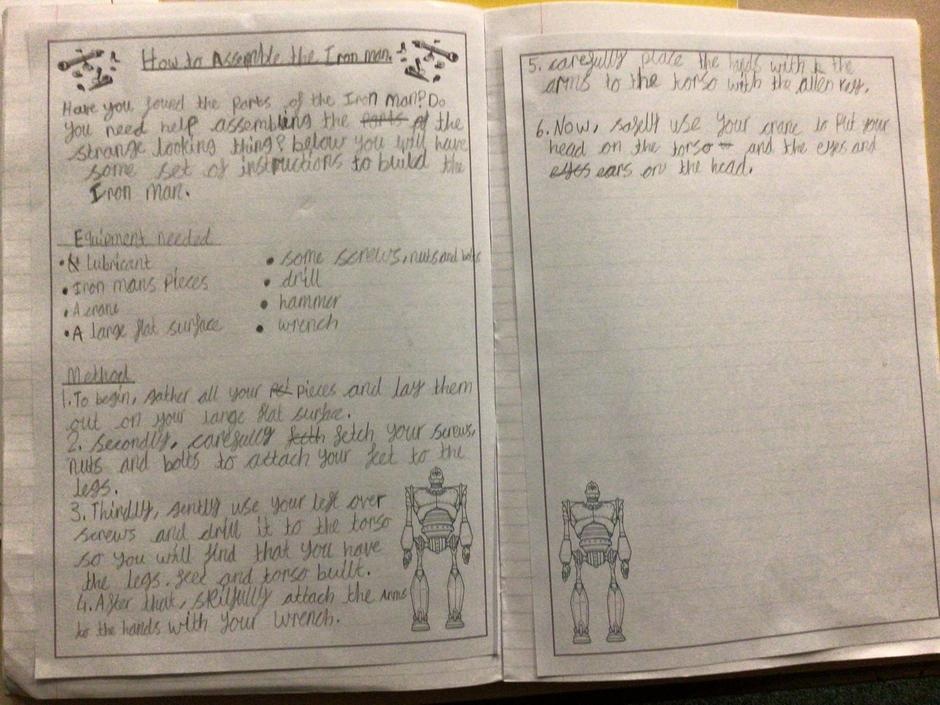 How to Assemble the Iron man.
Have you found the Parts of the Iron Man? Do
you need help assembling the parts of the
strange looking thing? below you will have
some set of instructions to build the
Iron Man.
Equipment needed
• Lubricant
• Iron mans Pieces
• A crane
• A large flat surface
• some screws, nuts and bolts
• drill
• hammer
• wrench
Method
1. To begin, gather all your pieces and lay them
out on your large flat surfae.
2. Secondly, carefully feth fetch your screws,
nuts and bolts to attach your feet to the
legs.
3. Thirdly, gently use your left over
screws and drill it to the torso
so you will find that you have
the legs. feet and torso built.
4. After that, skilfully attach the Arms
to the hands with your wrench.
5. carefully place the with the
arms to the torso with the allen key.
6. Now, safely use your crane to put your
head on the torso and the eyes and
eyes ears on the head.